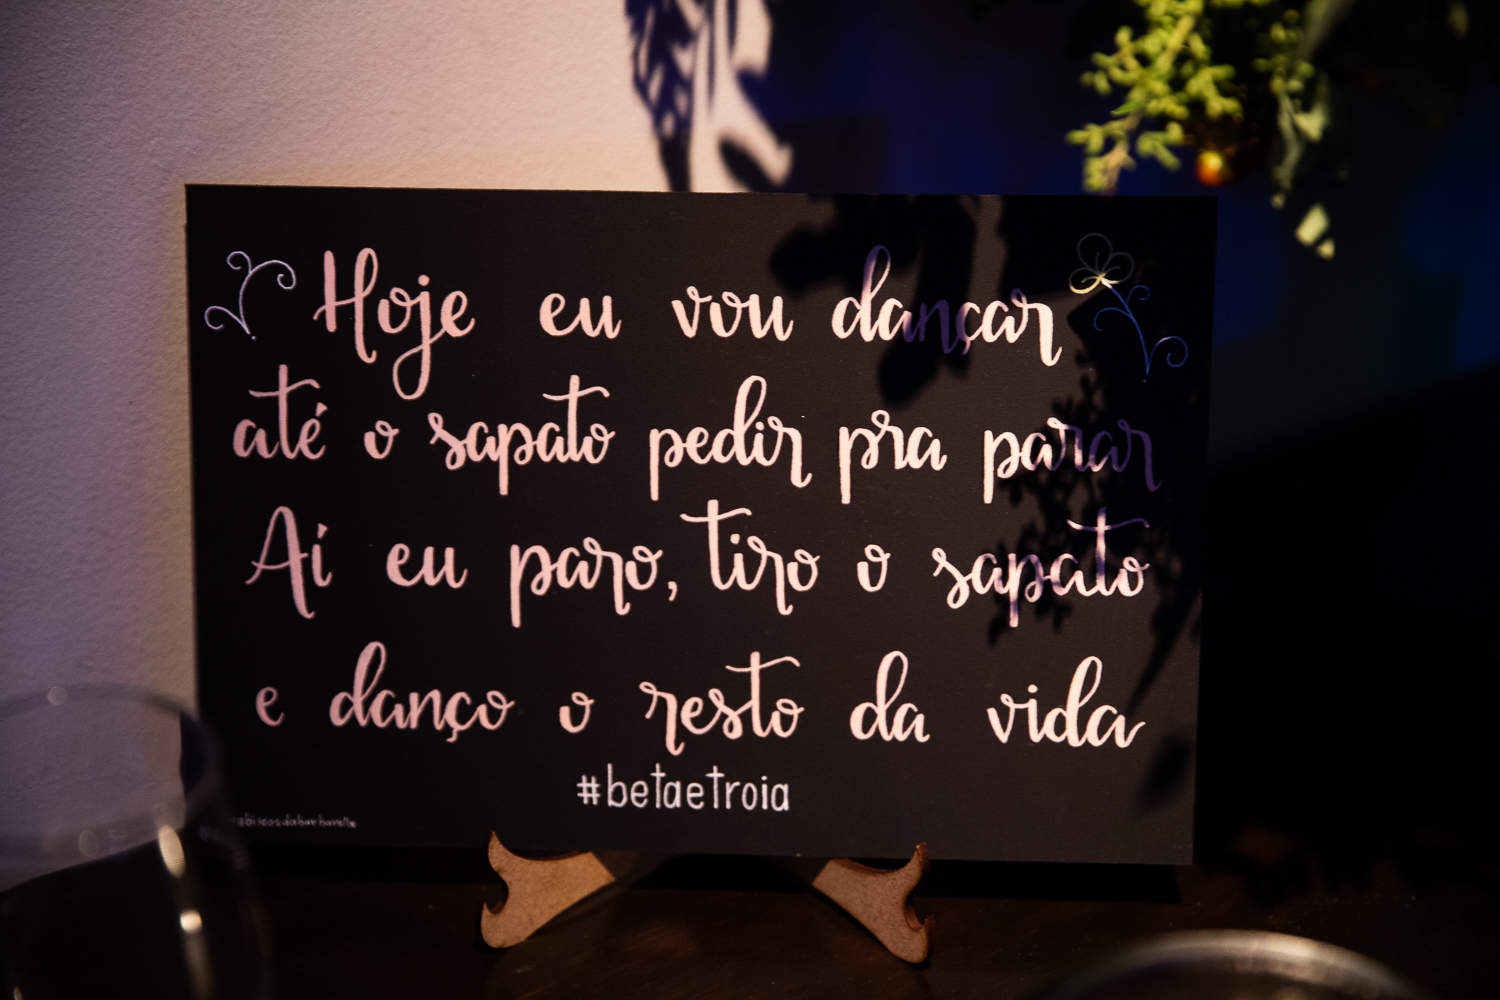 Hoje eu vou dançar
até o sapato pedir pra parar
Aí eu paro, tiro o sapato
e danço o resto da vida
#betaetroia